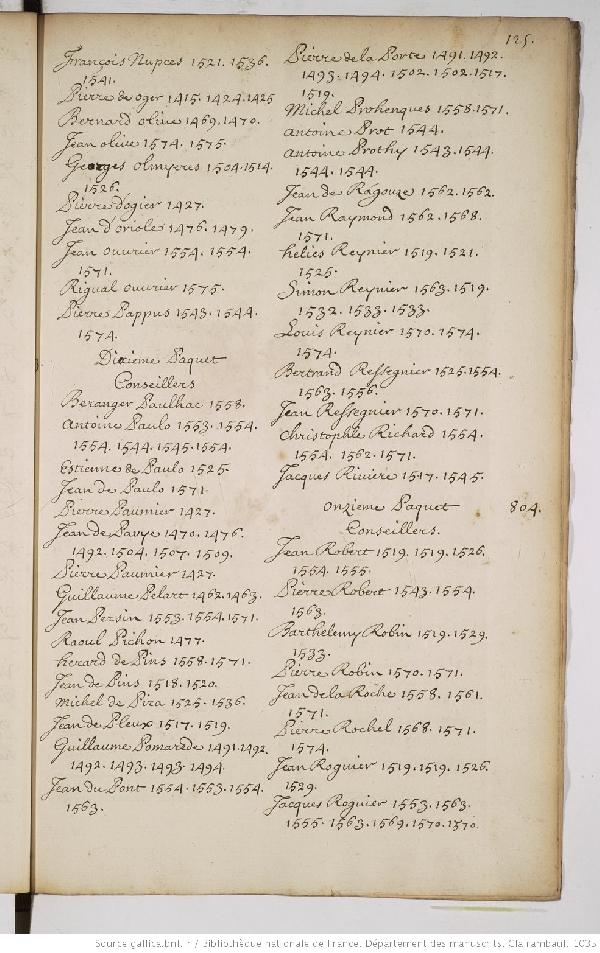 125.
François Nupces 1521. 1536.
1541.
Pierre de oger 1415. 1424. 1425
Bernard olive 1469. 1470.
Jean olive 1574. 1575.
Georges olmyeres 1504. 1514.
1526.
Pierre d'ogier 1427.
Jean d'oriole 1476. 1479.
Jean ouvrier 1554. 1554.
1571.
Rigual ouvrier 1575.
Pierre Pappus 1543. 1544.
1574.
Dixieme Paquet
Conseillers
Beranger Paulhac 1558.
Antoine Paulo 1553. 1554.
1554. 1544. 1545. 1554.
Estienne de Paulo 1525.
Jean de Paulo 1571.
Pierre Paumier 1427.
Jean de Pavye 1470. 1476.
1492. 1504. 1507. 1509.
Pierre Paumier 1427.
Guillaume Pelart 1462. 1463.
Jean Persin 1553. 1554. 1571.
Raoul Pichon 1477.
herard de Pins 1558. 1571.
Jean de Pins 1518. 1520.
Michel de Pira 1525. 1536.
Jean de Pleux 1517. 1519.
Guillaume Pomarede 1491. 1492.
1492. 1493. 1493. 1494.
Jean du Pont 1554. 1553. 1554.
1563.
Pierre de la Porte 1491. 1492.
1493. 1494. 1502. 1502. 1517.
1519.
Michel Prohenques 1558. 1571.
antoine Prot 1544.
antoine Prothy 1543. 1544.
1544. 1544.
Jean de Ragouze 1562. 1562.
Jean Raymond 1562. 1568.
1571.
helies Reynier 1519. 1521.
1525.
Simon Reynier 1563. 1519.
1532. 1533. 1533.
Louis Reynier 1570. 1574.
1574.
Bertrand Ressegnier 1525. 1554.
1563. 1556.
Jean Ressegnier 1570. 1571.
Christophle Richard 1554.
1554. 1562. 1571.
Jacques Riviere 1517. 1545.
onzieme Paquet 804.
Conseillers.
Jean Robert 1519. 1519. 1526.
1554. 1555.
Pierre Robert 1543. 1554.
1563.
Barthelemy Robin 1519. 1529.
1533.
Pierre Robin 1570. 1571.
Jean de la Roche 1558. 1561.
1571.
Pierre Rochel 1568. 1571.
1574.
Jean Roguier 1519. 1519. 1526.
1529.
Jacques Roguier 1553. 1563.
1555. 1563. 1569. 1570. 1570.
Source gallica.bnf.fr / Bibliothèque nationale de France. Département des manuscrits. Clairambault 1035